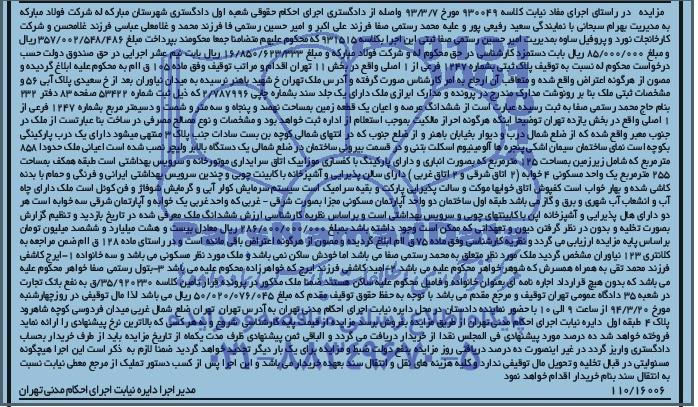 مزایده در راستای اجرای مفاد نیابت کلاسه ۹۳۰۰۴۹ مورخ ۹۳/۳/۷ واصله از دادگستری اجرای احکام حقوقی شعبه اول دادگستری شهرستان مبارکه له شرکت فولاد مبارکه
به مدیریت بهرام سبحانی با نمایندگی سعید رفیعی پور و علیه محمد رستمی صفا فرزند علی اکبر و امیر حسین رستمی فرزند محمد و غلامعلی عباسی فرزند غلامحسن و شرکت
کارخانجات نورد و پروفیل ساوه بمدیریت امیر حسین رستمی صفا ثبتی این اجرا بکلاسه ۹۳۱۵۱۵ که محکوم علیهم متضامنا جمعا محکومند بپرداخت مبلغ ریال
و مبلغ ۸۵/۰۰۰/۰۰۰ ریال بابت دستمزد کارشناس در حق محکوم له و شرکت فولاد مبارکه و مبلغ ریال بابت نیم عشر اجرایی در حق صندوق دولت حسب
درخواست محکوم له نسبت به توقیف پلاک ثبتی بشماره ۱۲۴۷ فرعی از ۱ اصلی واقع در بخش ۱۱ تهران اقدام و مراتب توقیف وفق ماده ۱۰۵ ق اام به محکوم علیه ابلاغ گردیده و
مصون از هرگونه اعتراض واقع شده و متعاقب آن ارجاع به امر کارشناس صورت گرفته و آدرس ملک تهران خ شهید باهنر نرسیده به میدان نیاوران بعد از خ سعیدی پلاک آبی ۵۶ و
مشخصات ثبتی ملک بنا بر رونوشت مدارک مندرج در پرونده و مدارک ابرازی ملک دارای یک جلد سند بشماره چاپی ۲/۷۸۷۹۹۶ که ذیل ثبت شماره ۵۳۴۲۲ صفحه ۸۳ دفتر ۲۳۲
بنام حاج محمد رستمی صفا به ثبت رسیده عبارت است از ششدانگ عرصه و اعیان یک قطعه زمین بمساحت پانصد و پنجاه و سه متر و شصت و دسیمتر مربع بشماره ۱۲۴۷ فرعی از
۱ اصلی واقع در بخش یازده تهران توضیحا اینکه هرگونه احراز مالکیت بموجب استعلام از اداره ثبت خواهد بود و مشخصات و نوع مصالح مصرفی در ساخت بنا عبارتست از ملک در
جنوب معبر واقع شده که از ضلع شمال درب و دیوار بخیابان باهنر و از ضلع جنوب که در انتهای شمالی کوچه بن بست سادات جنب پلاک ۳ منتهی میشود دارای یک درب پارکینگی
بکوچه است نمای ساختمان سیمان اشکی پنجره ها آلومینیوم اسکلت بتنی و در قسمت بیرونی ساختمان در ضلع شمالی یک دستگاه بالابر ویلچر نصب شده است اعیانی ملک حدودا ۸۵۸
مترمربع که شامل زیرزمین بمساحت ۱۲۵ مترمربع که بصورت انباری و دارای پارکینگ با کفسازی موزاییک اتاق سرایداری موتورخانه و سرویس بهداشتی است طبقه همکف بمساحت
۲۵۵ مترمربع یک واحد مسکونی ۴ خوابه (۲ اتاق شرقی و ۲ اتاق غربی) دارای سالن پذیرایی و آشپزخانه با کابینت چوبی و چندین سرویس بهداشتی ایرانی و فرنگی و حمام با بدنه
کاشی شده و بهار خواب است کفپوش اتاق خوابها موکت و سالت پذیرایی پارکت و بقیه سرامیک است سیستم سرمایش کولر آبی و گرمایش شوفاژ و فن کوئل است ملک دارای چاه
آب و انشعاب آب شهری و برق و گاز می باشد طبقه اول ساختمان دو واحد آپارتمان مسکونی مجزا بصورت شرقی - غربی که واحد غربی یک خوابه و آپارتمان شرقی سه خوابه است هر
دو دارای هال پذیرایی و آشپزخانه اپن با کابینتهای چوبی و سرویس بهداشتی است و براساس نظریه کارشناسی ارزش ششدانگ ملک معرفی شده در تاریخ بازدید و تنظیم گزارش
بصورت تخلیه و بدون در نظر گرفتن دیون و تعهداتی که ممکن است وجود داشته باشد بمبلغ ریال معادل بیست و هشت میلیارد و ششصد میلیون تومان
براساس پایه مزایده ارزیابی می گردد و نظریه کارشناسی وفق ماده ۷۵ ق اام ابلاغ گردیده و مصون از هرگونه اعتراض باقی مانده است و در راستای ماده ۱۲۸ ق اام ضمن مراجعه به
کلانتری ۱۲۳ نیاوران مشخص گردید ملک مورد نظر متعلق به محمد رستمی صفا می باشد اما خودش ساکن نمی باشد و ملک مورد نظر مسکونی می باشد و سه خانواده ۱-ایرج کاشفی
فرزند محمد تقی به همراه همسرش که شوهر خواهر محکوم علیه می باشد ۲-امید کاشفی فرزند ایرج که خواهرزاده محکوم علیه می باشد ۳-بتول رستمی صفا خواهر محکوم علیه
می باشد که بدون هیچ قرارداد اجاره نامه ای بعنوان خانواده و فامیل محکوم علیه ساکن هستند ضمنا ملک مذکور در پرونده قرار تامین کلاسه ۳۵/۹۲۰۲۳۰/ق به نفع بانک تجارت
در شعبه ۳۵ دادگاه عمومی تهران توقیف و مرجع مقدم می باشد با توجه به حفظ حقوق توقیف مقدم که مبلغ ۵۰/۰۲۰/۰۷۶/۰۴۵ ریال می باشد لذا مال توقیفی در روز چهارشنبه
مورخ ۹۴/۳/۲۰ از ساعت ۹ الی ۱۰ با حضور نماینده دادستان در محل دایره نیابت اجرای احکام مدنی تهران به آدرس تهران تهران ضلع شمال غربی میدان فردوسی کوچه شاهرود
پلاک ۴ طبقه اول دایره نیابت اجرای احکام مدنی تهران از طریق مزایده بفروش برسد مزایده از قیمت پایه کارشناسی شروع و به هر کس که بالاترین نرخ پیشنهادی را ارائه نماید
فروخته خواهد شد ده درصد مورد پیشنهادی فی المجلس نقدا از خریدار دریافت می گردد و الباقی ثمن پیشنهادی ظرف مدت یکماه از تاریخ مزایده باید از طرف خریدار بحساب
دادگستری واریز گردد در غیر اینصورت ده درصد دریافتی روز مزایده بنفع دولت ضبط و مزایده برای یک بار دیگر تجدید خواهد گردید ضمنا لازم به ذکر است این اجرا هیچگونه
مسئولیتی در قبال تخلیه و تحویل مال توقیفی ندارد و کلیه هزینه های نقل و انتقال سند بعهده خریدار می باشد و این اجرا پس از کسب دستور تملیک از مرجع معطی نیابت نسبت
به انتقال سند بنام خریدار اقدام خواهد نمود
۱۱۰/۱۶۰۰۶ مدیر اجرا دایره نیابت اجرای احکام مدنی تهران
۰۲۱-۸۸۳۴۹۶۷۰-۵